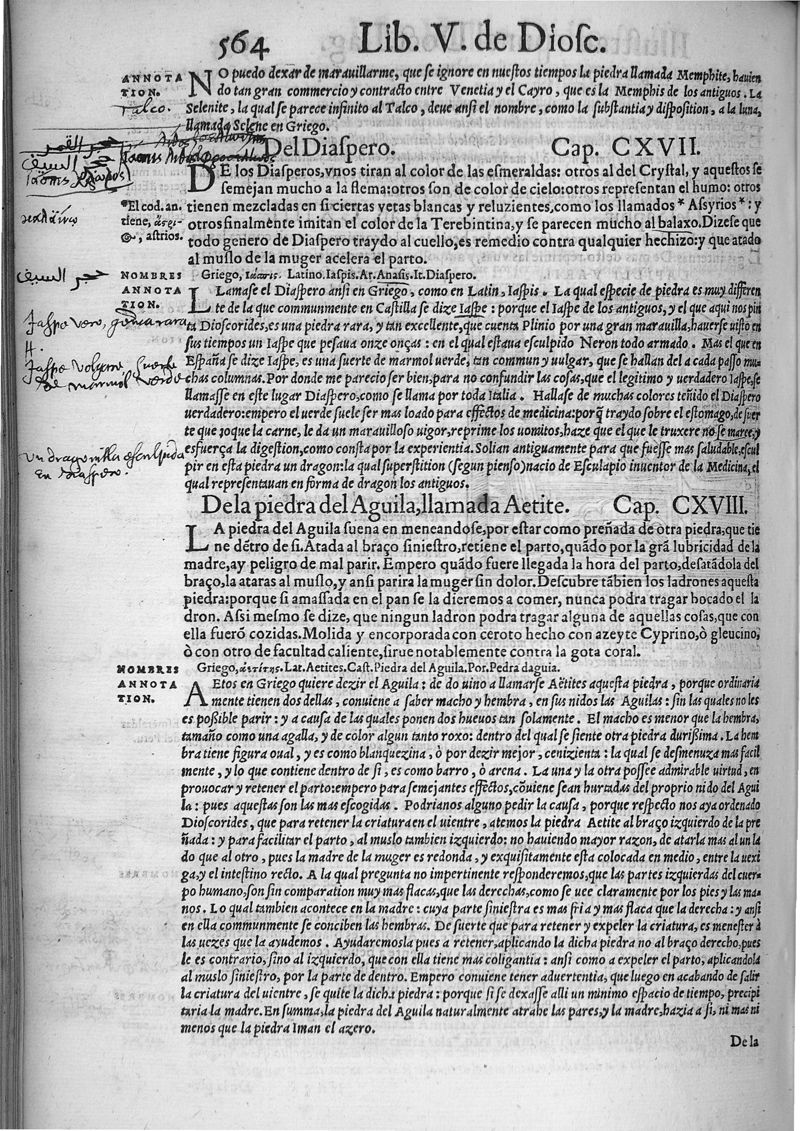 564 Lib. V. de Diosc.
ANNOTA
TION.
NO puedo dexar de marauillarme, que se ignore en nuestos tiempos la piedra llamada Memphite, hauien
do tan gran commercio y contracto entre Venetia y el Cayro, que es la Memphis de los antiguos. La
Selenite, la qual se parece infinito al Talco, deue ansi el nombre, como la substantia y disposition, a la luna,
llamada Selene en Griego.
Talco.
حجر القمر
حجر السيف
Del Diaspero. Cap. CXVII.
DE los Diasperos, vnos tiran al color de las esmeraldas: otros al del Crystal, y aquestos se
semejan mucho a la flema: otros son de color de cielo: otros representan el humo: otros
tienen mezcladas en si ciertas vetas blancas y reluzientes, como los llamados * Assyrios *: y
otros finalmẽte imitan el color de la Terebintina, y se parecen mucho al balaxo. Dizese que
todo genero de Diaspero traydo al cuello, es remedio contra qualquier hechizo: y que atado
al muslo de la muger acelera el parto.
*El cod. an.
tiene,
astrios.
حجر السيف
NOMBRES Griego, ἴασπις. Latino. Iaspis. Ar. Anasis. It. Diaspero.
ANNOTA
TION.
LLamase el Diaspero ansi en Griego, como en Latin, Iaspis. La qual especie de piedra es muy differen
te de la que communmente en Castilla se dize Iaspe: porque el Iaspe de los antiguos, y el que aqui nos pin
ta Dioscorides, es una piedra rara, y tan excellente, que cuenta Plinio por una gran marauilla, hauerse uisto en
sus tiempos un Iaspe que pesaua onze onças: en el qual estaua esculpido Neron todo armado. Mas el que en
España se dize Iaspe, es una suerte de marmol uerde, tan commun y uulgar, que se hallan del a cada passo mu
chas columnas. Por donde me parecio ser bien, para no confundir las cosas, que el legitimo y uerdadero Iaspe, se
llamasse en este lugar Diaspero, como se llama por toda Italia. Hallase de muchas colores teñido el Diaspero
uerdadero: empero el uerde suele ser mas loado para effectos de medicina: porq̃ traydo sobre el estomago, de suer
te que toque la carne, le da un marauilloso uigor, reprime los uomitos, haze que el que le truxere no se maree, y
esfuerça la digestion, como consta por la experientia. Solian antiguamente para que fuesse mas saludable, escul
pir en esta piedra un dragon: la qual superstition (segun pienso) nacio de Esculapio inuentor de la Medicina, el
qual representauan en forma de dragon los antiguos.
Jaspe vero, gema rara
Jaspe Volgare suerte
de marmol verde
un dragonillo esculpido
en diaspero.
De la piedra del Aguila, llamada Aetite. Cap. CXVIII.
LA piedra del Aguila suena en meneandose, por estar como preñada de otra piedra, que tie
ne dẽtro de si. Atada al braço siniestro, retiene el parto, quãdo por la grã lubricidad de la
madre, ay peligro de mal parir. Empero quãdo fuere llegada la hora del parto, desatãdola del
braço, la ataras al muslo, y ansi parira la muger sin dolor. Descubre tãbien los ladrones aquesta
piedra: porque si amassada en el pan se la dieremos a comer, nunca podra tragar bocado el la
dron. Assi mesmo se dize, que ningun ladron podra tragar alguna de aquellas cosas, que con
ella fuerõ cozidas. Molida y encorporada con ceroto hecho con azeyte Cyprino, ò gleucino,
ò con otro de facultad caliente, sirue notablemente contra la gota coral.
NOMBRES Griego, ἀετίτης. Lat. Aetites. Cast. Piedra del Aguila. Por. Pedra daguia.
ANNOTA
TION.
AEtos en Griego quiere dezir el Aguila: de do uino a llamarse Aëtites aquesta piedra, porque ordinaria
mente tienen dos dellas, conuiene a saber macho y hembra, en sus nidos las Aguilas: sin las quales no les
es possible parir: y a causa de las quales ponen dos hueuos tan solamente. El macho es menor que la hembra,
tamaño como una agalla, y de color algun tanto roxo: dentro del qual se siente otra piedra durissima. La hem
bra tiene figura oual, y es como blanquezina, ò por dezir mejor, cenizienta: la qual se desmenuza mas facil
mente, y lo que contiene dentro de si, es como barro, ò arena. La una y la otra possee admirable uirtud, en
prouocar y retener el parto: empero para semejantes effectos, cõuiene sean hurtadas del proprio nido del Agui
la: pues aquestas son las mas escogidas. Podrianos alguno pedir la causa, porque respecto nos aya ordenado
Dioscorides, que para retener la criatura en el uientre, atemos la piedra Aetite al braço izquierdo de la pre
ñada: y para facilitar el parto, al muslo tambien izquierdo: no hauiendo mayor razon, de atarla mas al un la
do que al otro, pues la madre de la muger es redonda, y exquisitamente esta colocada en medio, entre la uexi
ga, y el intestino recto. A la qual pregunta no impertinente responderemos, que las partes izquierdas del cuer
po humano, son sin comparation muy mas flacas, que las derechas, como se uee claramente por los pies y las ma
nos. Lo qual tambien acontece en la madre: cuya parte siniestra es mas fria y mas flaca que la derecha: y ansi
en ella communmente se conciben las hembras. De suerte que para retener y expeler la criatura, es menester à
las uezes que la ayudemos. Ayudaremosla pues a retener, aplicando la dicha piedra no al braço derecho, pues
le es contrario, sino al izquierdo, que con ella tiene mas coligantia: ansi como a expeler el parto, aplicandola
al muslo siniestro, por la parte de dentro. Empero conuiene tener aduertentia, que luego en acabando de salir
la criatura del uientre, se quite la dicha piedra: porque si se dexasse alli un minimo espacio de tiempo, precipi
taria la madre. En summa, la piedra del Aguila naturalmente atrahe las pares, y la madre, hazia a si, ni mas ni
menos que la piedra Iman el azero.
De la